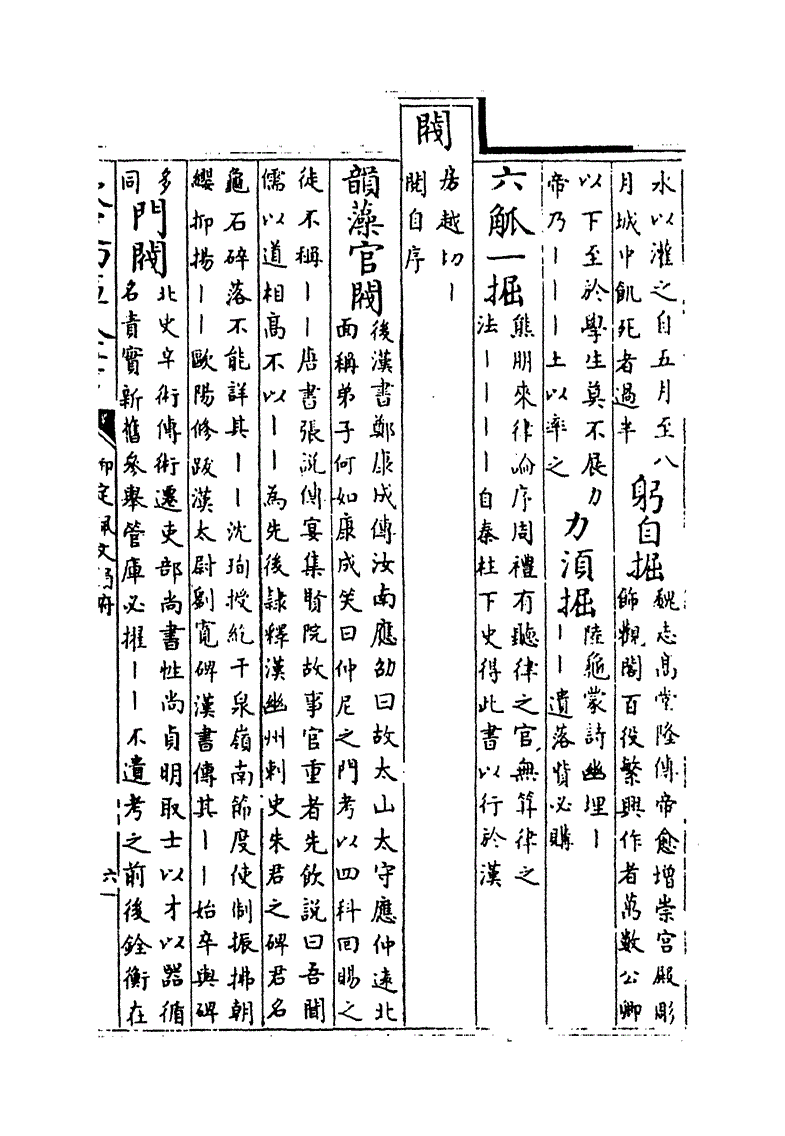 水以灌之自五月至八
月城中飢死者過半
躬自掘
魏志高堂隆傳帝愈增崇宮殿彫
飾觀閣百役繁興作者萬數公卿
以下至於學生莫不展力
帝乃丨丨丨土以率之
力須掘
陸龜蒙詩幽埋丨
丨丨遺落賞必購
六觚一掘
熊朋來律論序周禮有聽律之官無算律之
法丨丨丨丨自秦柱下史得此書以行於漢
閥
房越切丨
閱自序
韻藻官閥
後漢書鄭康成傳汝南應劭曰故太山太守應仲遠北
面稱弟子何如康成笑曰仲尼之門考以四科回賜之
徒不稱丨丨唐書張說傳宴集賢院故事官重者先飲說曰吾聞
儒以道相高不以丨丨為先後隸釋漢幽州刺史朱君之碑君名
龜石碎落不能詳其丨丨沈珣授紇干泉嶺南節度使制振拂朝
纓抑揚丨丨歐陽修跋漢太尉劉寬碑漢書傳其丨丨始卒與碑
多
同
門閥
北史辛術傳術遷吏部尚書性尚貞明取士以才以器循
名責實新舊參舉管庫必擢丨丨不遺考之前後銓衡在
御定佩文韻府
六